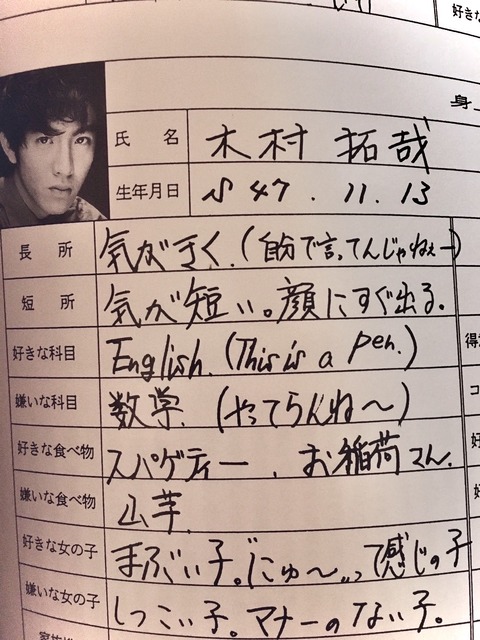 好きな
身上
氏 名 木村 拓哉
生年月日 S 47. 11. 13
長 所 気がきく.(自分で言ってんじゃねぇー)
短 所 気が短い。顔にすぐ出る。
好きな科目 English. (This is a pen.)
得意
嫌いな科目 数学. (やってらんね〜)
コ
好きな食べ物 スパゲティー 、お稲荷さん.
好
嫌いな食べ物 山芋.
好
好きな女の子 まぶい子。"にゅ〜"って感じの子
嫌いな女の子 しつこい子。マナーのない子。